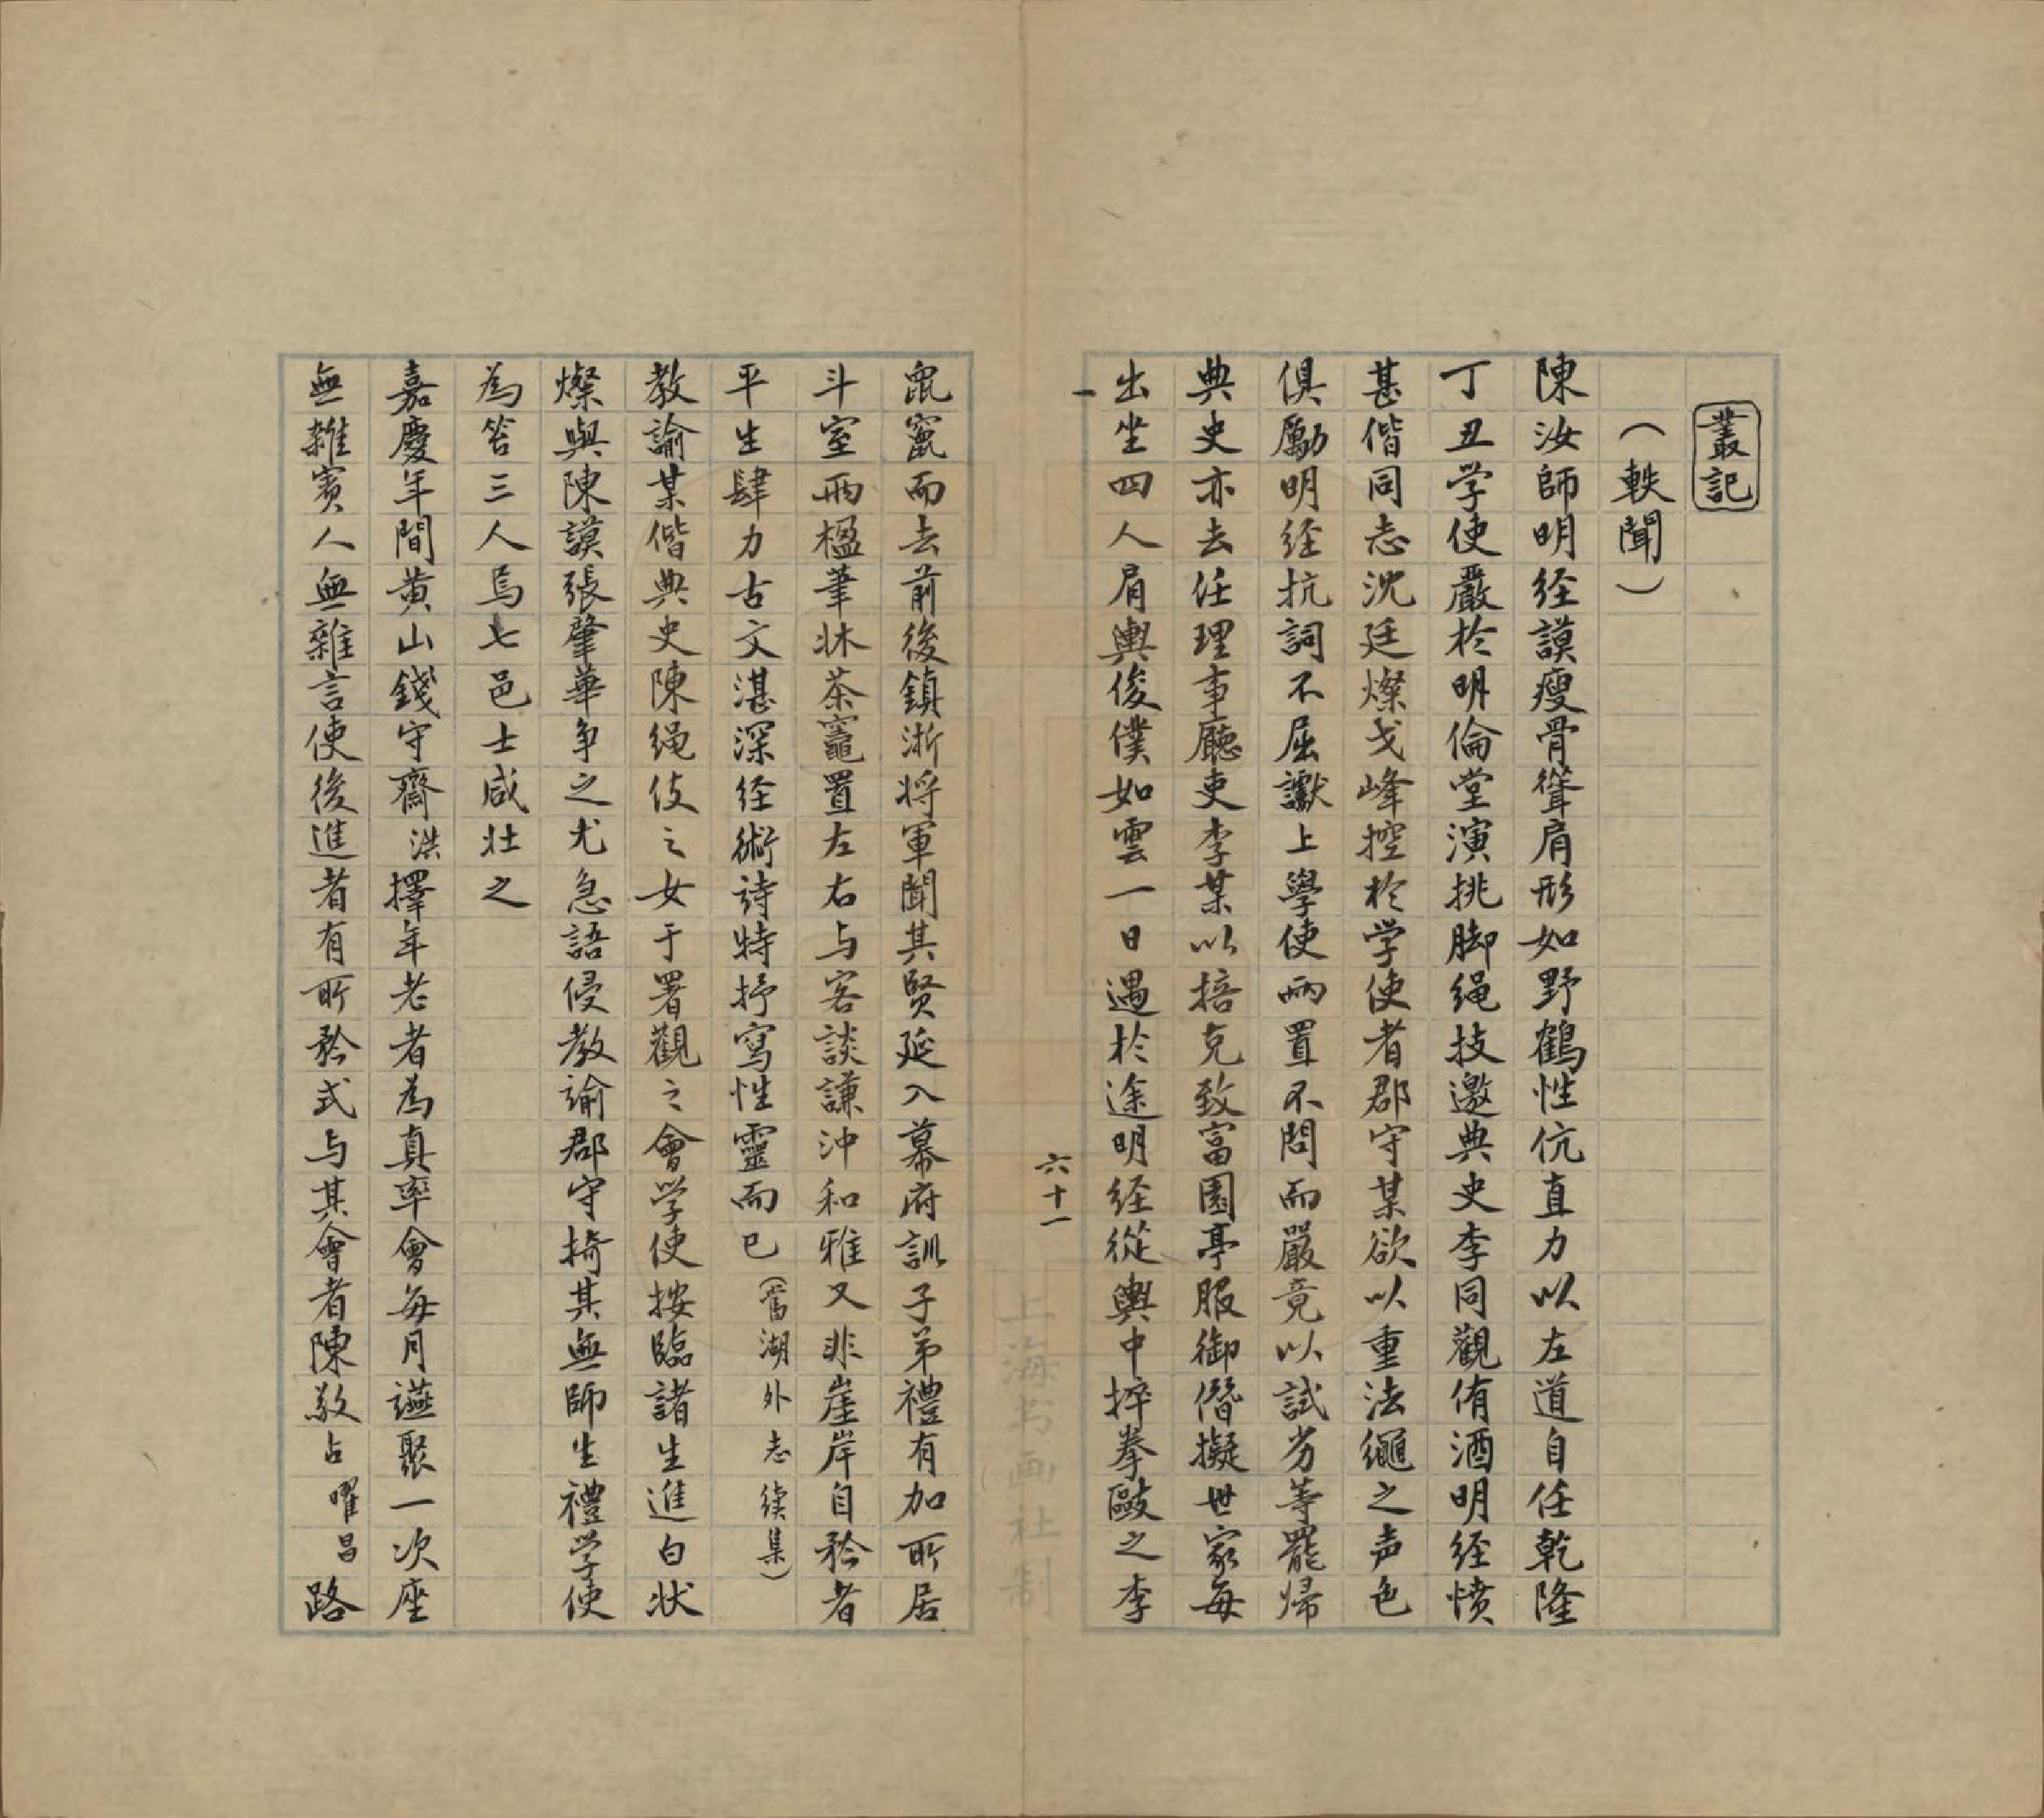 叢記
（軼聞）
陳汝師明经謨瘦骨聳肩形如野鶴性伉直力以左道自任乾隆
丁丑学使嚴於明倫堂演挑脚绳技邀典史李同觀侑酒明经愤
甚偕同志沈廷燦戈峰控於学使者郡守某欲以重法繩之声色
俱勵明经抗詞不屈讞上學使両置不問而嚴竟以試劣等罷帰
典史亦去任理事廳吏李某以掊克致富園亭服御僭擬世家每
出坐四人肩輿俊僕如雲一日遇於途明经從輿中捽拳毆之李
一
六十一
鼠竄而去前後鎮浙将軍聞其賢延入幕府訓子弟禮有加所居
斗室両楹筆牀茶竈置左右与客談謙沖和雅又非崖岸自矜者
平生肆力古文湛深经術詩特抒寫性靈而已（當湖外志续集）
教諭某偕典史陳绳伎之女于署觀之會学使按臨諸生進白状
燦與陳謨張肇華争之尤急語侵教諭郡守掎其無師生禮学使
為笞三人焉七邑士咸壮之
嘉慶年間黄山錢守齋洪擇年老者為真率會每月讌聚一次座
無雜賓人無雜言使後進者有所矜式与其會者陳敬占曜昌路
上海书画社制